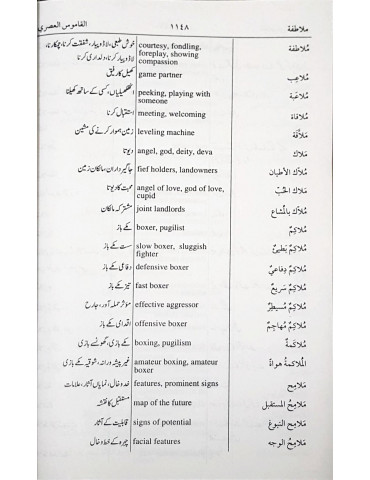 ملاطفة ١١٤٨ القاموس العصري
مُلاطفة courtesy, fondling, خوش طبعی، لاڈ و پیار، شفقت کرنا، چمکارنا،
foreplay, showing لاڈ و پیار کرنا، دلداری کرنا
compassion
مُلاعِب game partner کھیل کا رفیق
مُلاعَبة peeking, playing with اٹھکھیلیاں، کسی کے ساتھ کھیلنا
someone
مُلاقاة meeting, welcoming استقبال کرنا
leveling machine زمین ہموار کرنے کی مشین
مَلاك angel, god, deity, deva دیوتا
مُلاّك الأطيان fief holders, landowners جاگیرداران، مالکان زمین
مَلاك الحُبّ angel of love, god of love, محبت کا دیوتا
cupid
مُلاّك بالمُشاع joint landlords مشترکہ مالکان
مُلاكِمٌ boxer, pugilist مکے باز
مُلاكِمٌ بَطيئٌ slow boxer, sluggish سست مکے باز
fighter
مُلاكِمٌ دِفاعِيٌّ defensive boxer دفاعی مکے باز
مُلاكِمٌ سَريعٌ fast boxer تیز مکے باز
مُلاكِمٌ مُسيطِرٌ effective aggressor مؤثر حملہ آور، جارح
مُلاكِمٌ مُهاجِمٌ offensive boxer اقدامی مکے باز
مُلاكَمةٌ boxing, pugilism مکے بازی، گھونسے بازی
المُلاكمةُ هواةٌ amateur boxing, amateur غیر پیشہ ورانہ، شوقیہ مکے بازی
boxer
مَلامِح features, prominent signs خدوخال، نمایاں آثار، علامات
مَلامِحُ المستقبل map of the future مستقبل کا نقشہ
مَلامِحُ النبوغ signs of potential قابلیت کے آثار
مَلامِحُ الوجه facial features چہرہ کے خط و خال